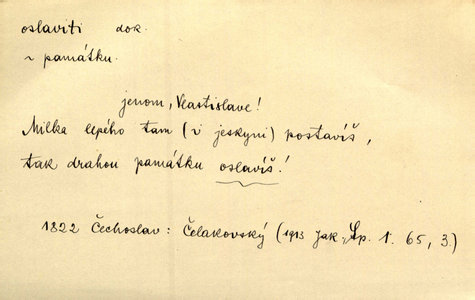 oslaviti dok.
~ památku.
jenom, Vlastislave!
Milka lepého tam (v jeskyni) postavíš,
tak drahou památku oslavíš!
1822 Čechoslav: Čelakovský (1913 Jak., Sp. 1. 65, 3.)